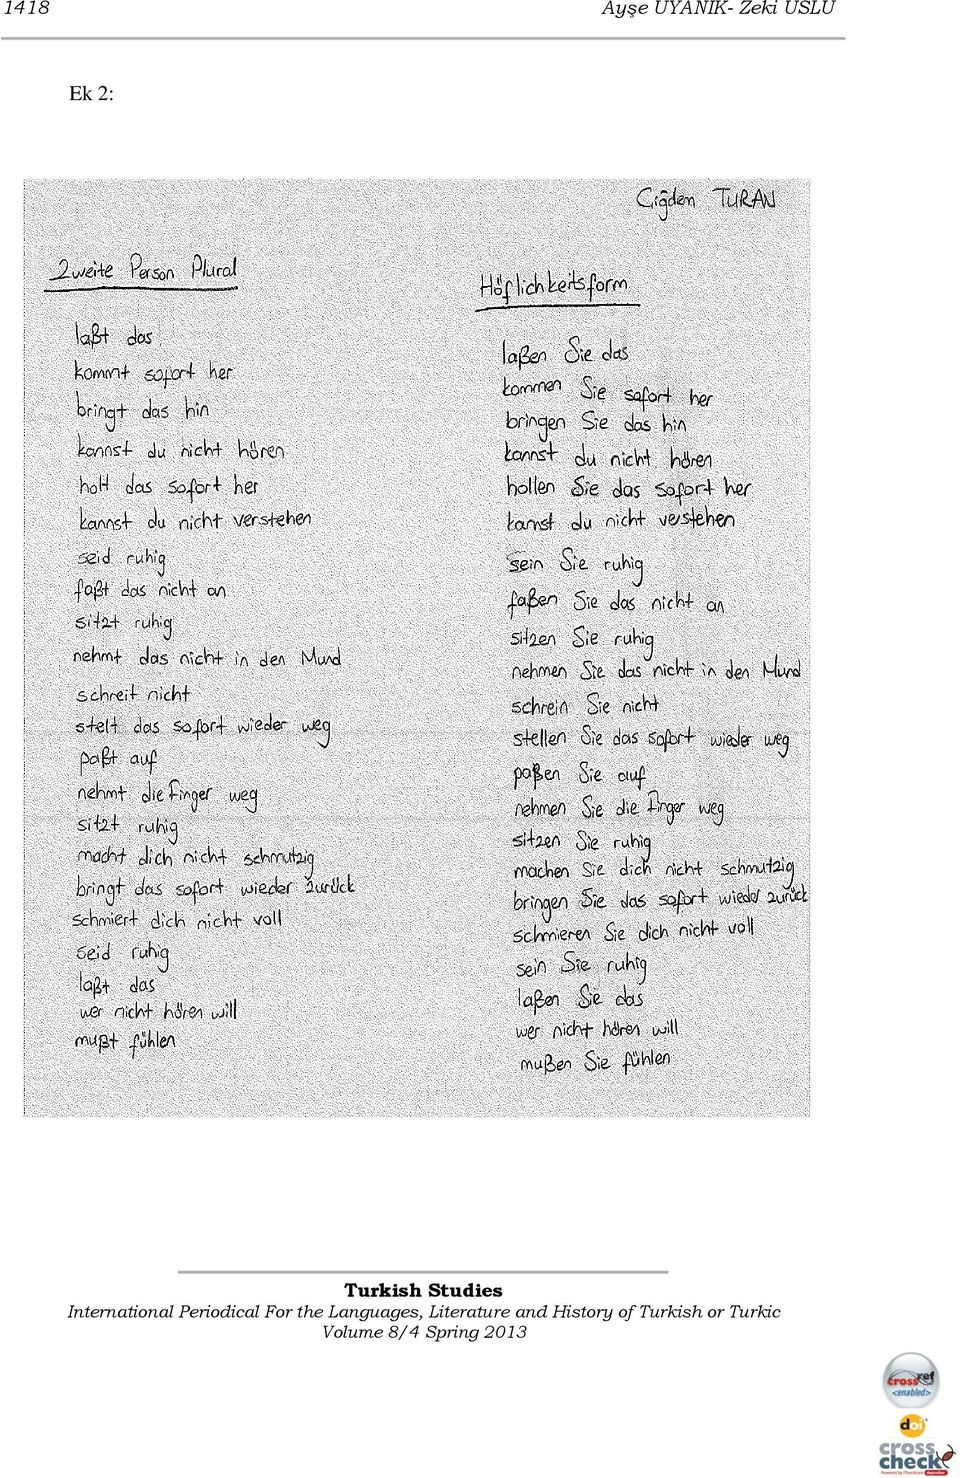 1418 Ayşe UYANIK- Zeki USLU
Ek 2:
Çiğdem TURAN
Zweite Person Plural
laßt das
kommt sofort her
bringt das hin
kannst du nicht hören
holt das sofort her
kannst du nicht verstehen
seid ruhig
faßt das nicht an
sitzt ruhig
nehmt das nicht in den Mund
schreit nicht
stelt das sofort wieder weg
paßt auf
nehmt die finger weg
sitzt ruhig
macht dich nicht schmutzig
bringt das sofort wieder zurück
schmiert dich nicht voll
seid ruhig
laßt das
wer nicht hören will
mußt fühlen
Höflichkeitsform
laßen Sie das
kommen Sie sofort her
bringen Sie das hin
kannst du nicht hören
hollen Sie das sofort her
kannst du nicht verstehen
sein Sie ruhig
faßen Sie das nicht an
sitzen Sie ruhig
nehmen Sie das nicht in den Mund
schrein Sie nicht
stellen Sie das sofort wieder weg
paßen Sie auf
nehmen Sie die finger weg
sitzen Sie ruhig
machen Sie dich nicht schmutzig
bringen Sie das sofort wieder zurück
schmieren Sie dich nicht voll
sein Sie ruhig
laßen Sie das
wer nicht hören will
mußen Sie fühlen
Turkish Studies
International Periodical For the Languages, Literature and History of Turkish or Turkic
Volume 8/4 Spring 2013
crossref
<enabled>
doi
cross
check